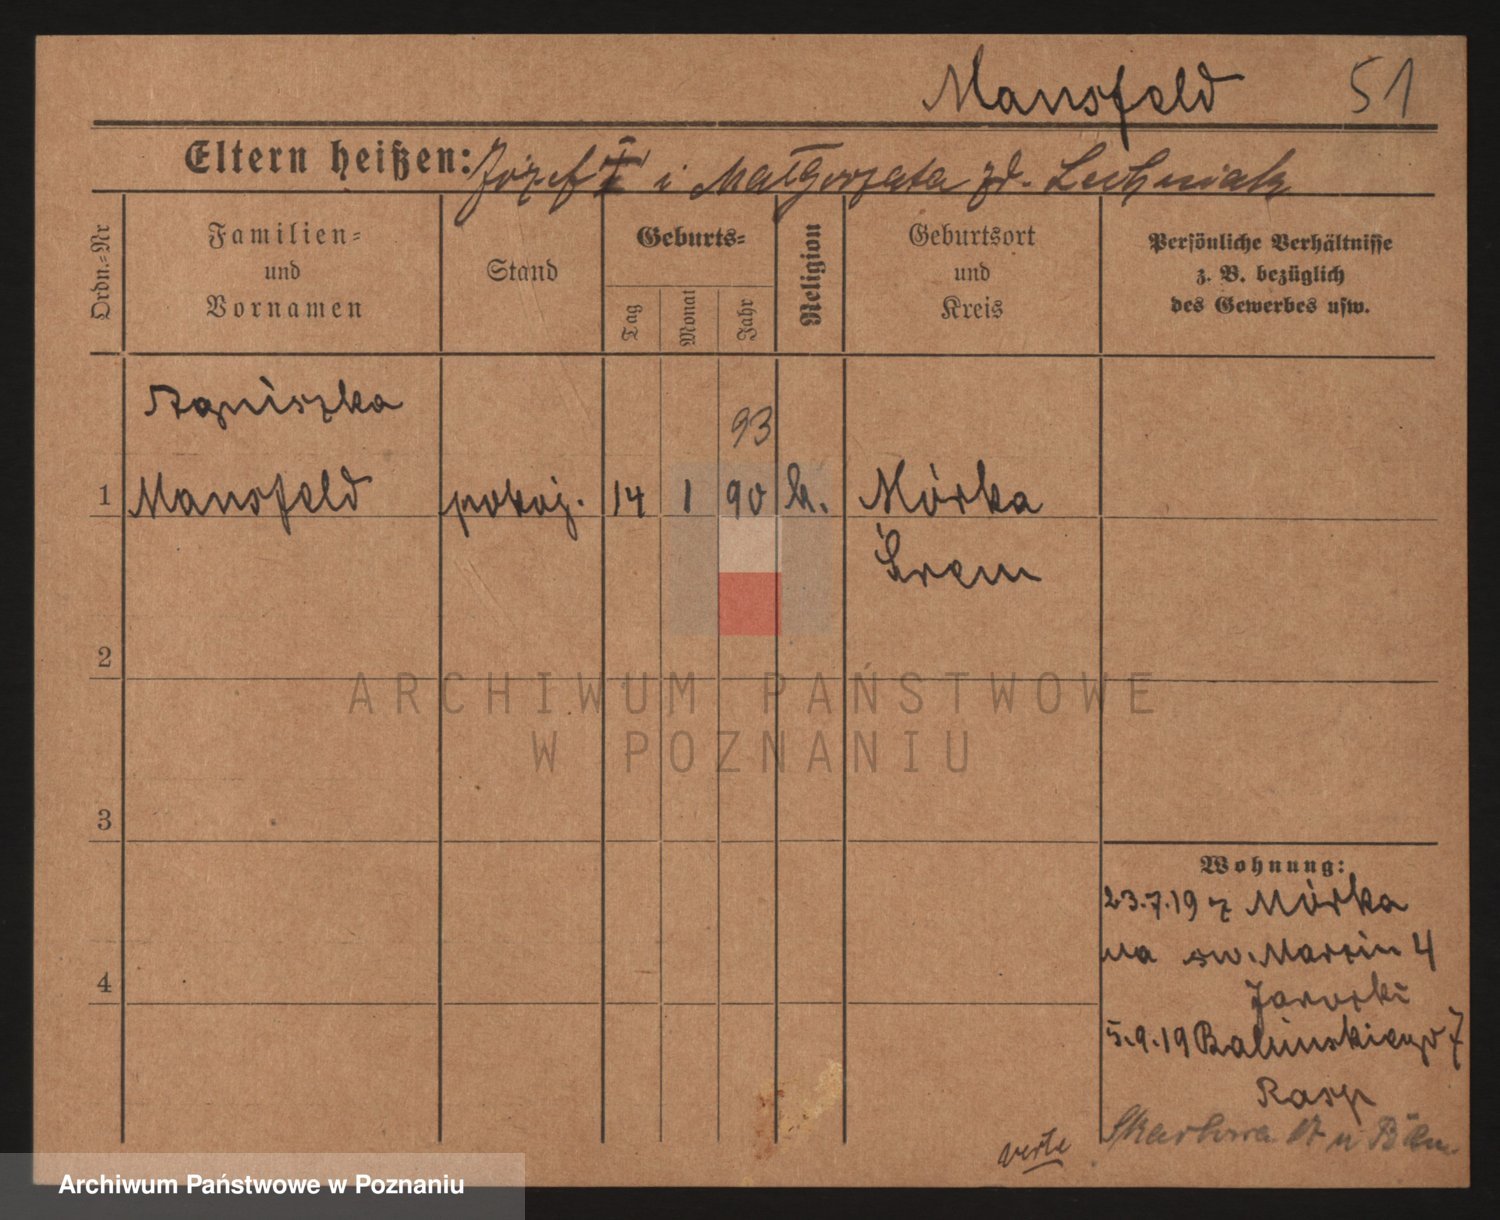 Mansfeld 51
Eltern heißen: Józef i Małgorzata zd. Lechniak
Ordn.-Nr
Familien-
und
Vornamen
Stand
Geburts-
Tag
Monat
Jahr
Religion
Geburtsort
und
Kreis
Persönliche Verhältnisse
z. B. bezüglich
des Gewerbes usw.
Agniszka
93
1 Mansfeld pokoj. 14 1 90 k. Mórka
Śrem
2
ARCHIWUM PAŃSTWOWE
W POZNANIU
3
Wohnung:
23.7.19 z Mórka
na św. Marcin 4
4
Jaroski
5.9.19 7
Rasp
verte
Archiwum Państwowe w Poznaniu